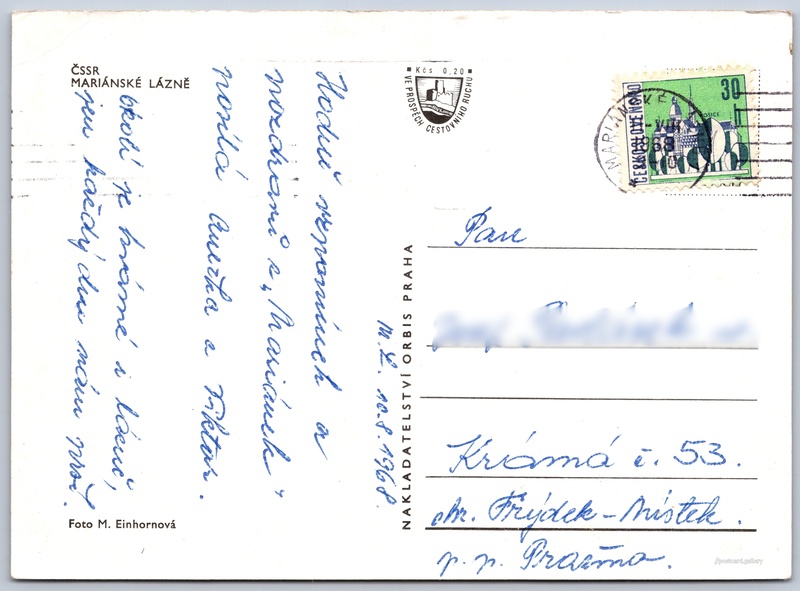 ČSSR
MARIÁNSKÉ LÁZNĚ
Kčs 0,20
VE PROSPĚCH CESTOVNÍHO RUCHU
30 h
ČESKOSLOVENSKO
MARIÁNSKÉ
1968
Hodně vzpomínek a
pozdravů z „Mariánek"
posílá Anežka a Viktor.
okolí je krásné i lázně,
jen každý den nám prší.
M. L. 10.8.1968.
NAKLADATELSTVÍ ORBIS PRAHA
Pan
Krásná č. 53.
okr. Frýdek-Místek.
p. p. Pražma.
Foto M. Einhornová